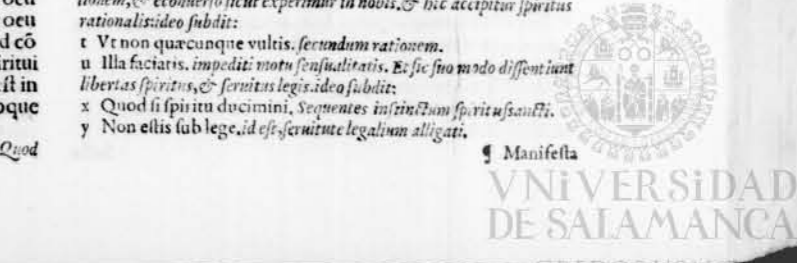 oeu
oeu
d cō
iritui
est in
oque
Quod
tionem, & econuerso sicut experimur in nobis, & hic accipitur spiritus
rationalis: ideo subdit:
t Vt non quæcunque vultis. secundum rationem.
u Illa faciatis. impediti motu sensualitatis. Et sic suo modo dissentiunt
libertas spiritus, & seruitus legis. ideo subdit:
x Quod si spiritu ducimini, Sequentes instinctum spiritussancti.
y Non estis sub lege, id est, seruitute legalium alligati,
¶ Manifesta
VNiVERSiDAD
DE SALAMANCA